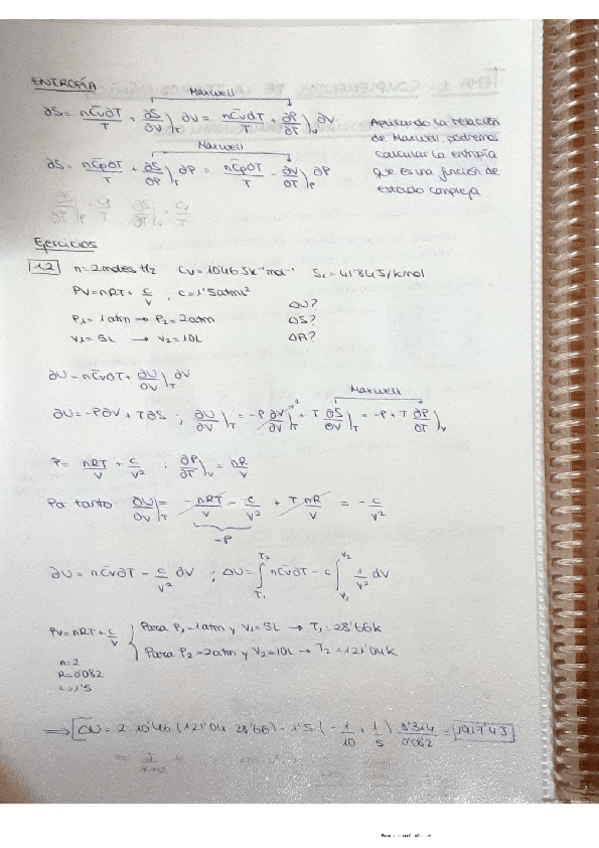 ENTROPÍA
Maxwell
∂S = nC̄v∂T/T + ∂S/∂V)T ∂V = nC̄vdT/T + ∂P/∂T)v ∂V
Aplicando la relación
de Maxwell, podremos
calcular la entropía
que es una función de
estado compleja
Maxwell
∂S = nC̄p∂T/T + ∂S/∂P)T ∂P = nC̄p∂T/T - ∂V/∂T)P ∂P
Ejercicios
1.2 n=2moles H2 Cv=10'46 JK⁻¹mol⁻¹ S1=41'84J/kmol
PV=nRT+ c/V , c=1'5atmL²
ΔU?
P1=1atm → P2=2atm ΔS?
V1=5L → V2=10L ΔA?
∂U = nC̄v∂T + ∂U/∂V)T ∂V
Maxwell
∂U = -P∂V + T∂S ; ∂U/∂V)T = -P ∂V/∂V)T + T ∂S/∂V)T = -P + T ∂P/∂T)V
P = nRT/V + c/V² ; ∂P/∂T)V = nR/V
Por tanto ∂U/∂V)T = - nRT/V - c/V² + T nR/V = - c/V²
-P
∂U = nC̄v∂T - c/V² ∂V ; ΔU = ∫T1 T2 nC̄v∂T - c ∫V1 V2 1/V² dV
PV=nRT+ c/V { Para P1=1atm y V1=5L → T1=28'66K
Para P2=2atm y V2=10L → T2=121'04K
n=2
R=0'082
c=1'5
⇒ ΔU = 2·10'46 (121'04-28'66) - 1'5 (- 1/10 + 1/5) 8'314/0'082 = 1917'4J